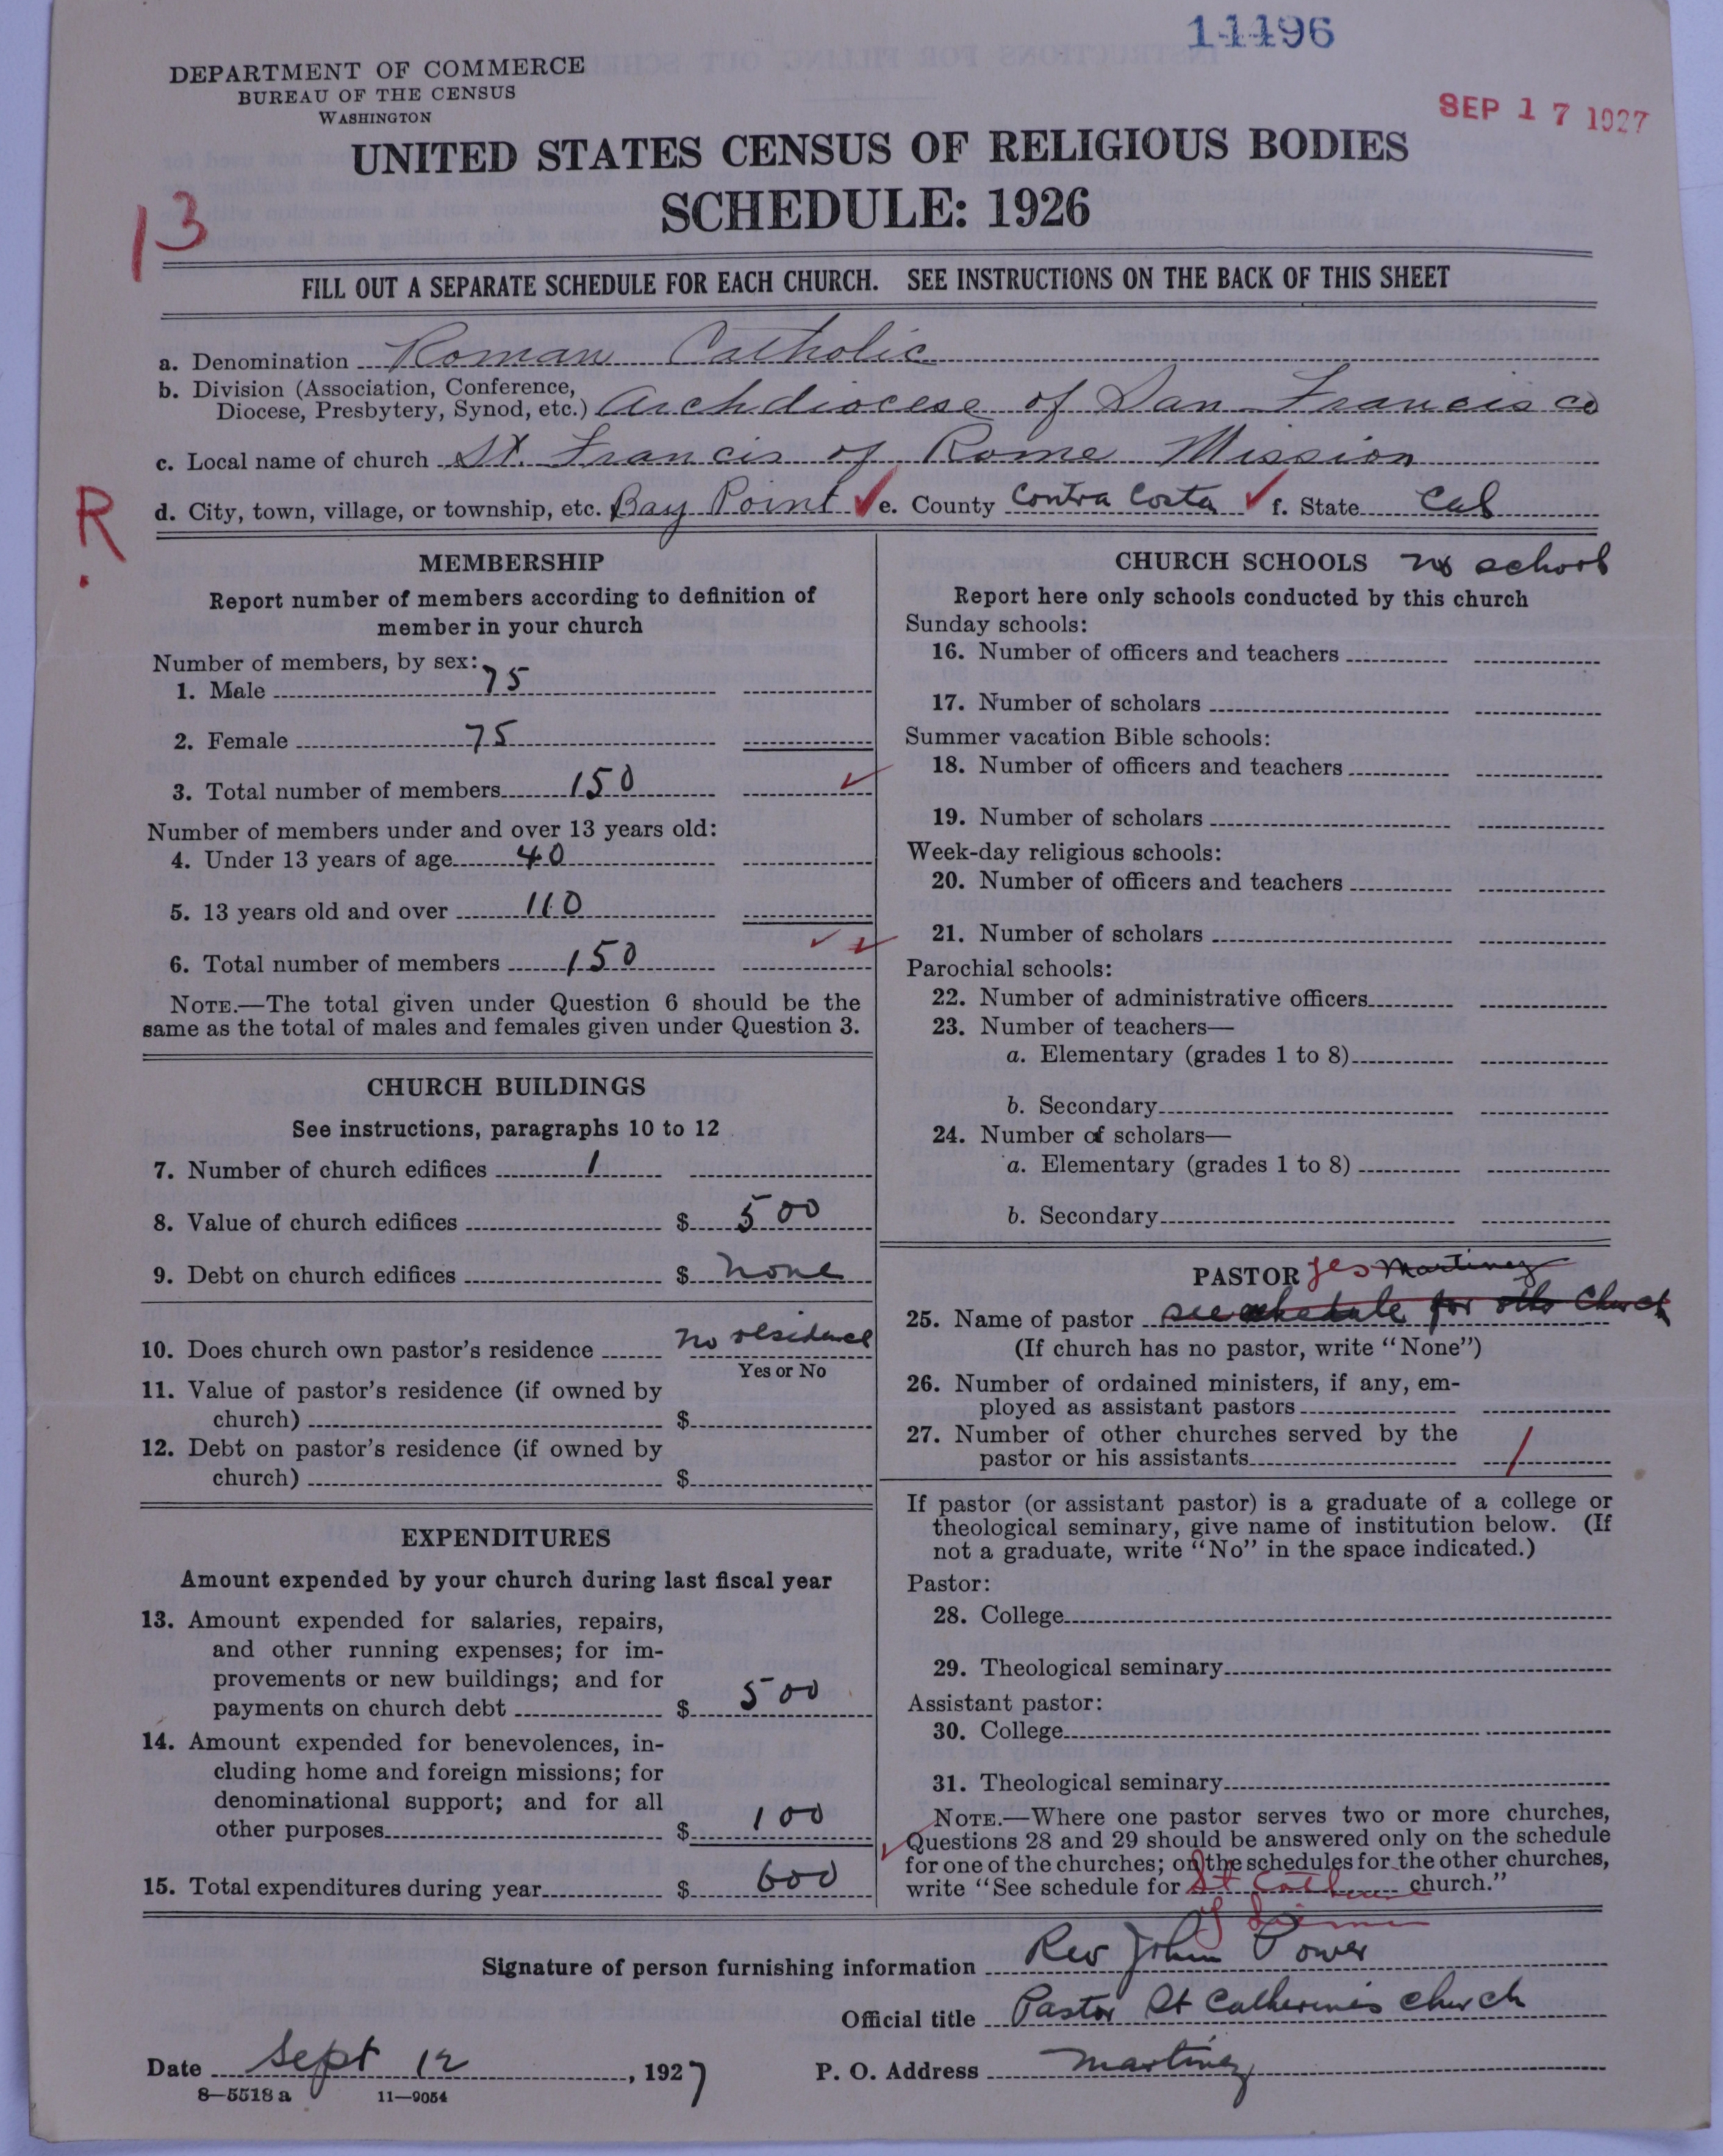 14496
DEPARTMENT OF COMMERCE
BUREAU OF THE CENSUS
WASHINGTON
SEP 17 1927
UNITED STATES CENSUS OF RELIGIOUS BODIES
SCHEDULE: 1926
13
FILL OUT A SEPARATE SCHEDULE FOR EACH CHURCH. SEE INSTRUCTIONS ON THE BACK OF THIS SHEET
a. Denomination Roman Catholic
b. Division (Association, Conference,
Diocese, Presbytery, Synod, etc.) Archdiocese of San Francisco
c. Local name of church St. Francis of Rome Mission
R.
d. City, town, village, or township, etc. Bay Point ✓ e. County Contra Costa ✓ f. State Cal
MEMBERSHIP
Report number of members according to definition of
member in your church
Number of members, by sex:
1. Male 75
2. Female 75
3. Total number of members 150 ✓
Number of members under and over 13 years old:
4. Under 13 years of age 40
5. 13 years old and over 110
6. Total number of members 150 ✓ ✓
NOTE.—The total given under Question 6 should be the
same as the total of males and females given under Question 3.
CHURCH BUILDINGS
See instructions, paragraphs 10 to 12
7. Number of church edifices 1
8. Value of church edifices $ 500
9. Debt on church edifices $ none
10. Does church own pastor's residence no residence
Yes or No
11. Value of pastor's residence (if owned by
church) $
12. Debt on pastor's residence (if owned by
church) $
EXPENDITURES
Amount expended by your church during last fiscal year
13. Amount expended for salaries, repairs,
and other running expenses; for im-
provements or new buildings; and for
payments on church debt $ 500
14. Amount expended for benevolences, in-
cluding home and foreign missions; for
denominational support; and for all
other purposes $ 100
15. Total expenditures during year $ 600
CHURCH SCHOOLS no school
Report here only schools conducted by this church
Sunday schools:
16. Number of officers and teachers
17. Number of scholars
Summer vacation Bible schools:
18. Number of officers and teachers
19. Number of scholars
Week-day religious schools:
20. Number of officers and teachers
21. Number of scholars
Parochial schools:
22. Number of administrative officers
23. Number of teachers—
a. Elementary (grades 1 to 8)
b. Secondary
24. Number of scholars—
a. Elementary (grades 1 to 8)
b. Secondary
PASTOR yes Martinez
25. Name of pastor see schedule for other Church
(If church has no pastor, write "None")
26. Number of ordained ministers, if any, em-
ployed as assistant pastors
27. Number of other churches served by the
pastor or his assistants 1
If pastor (or assistant pastor) is a graduate of a college or
theological seminary, give name of institution below. (If
not a graduate, write "No" in the space indicated.)
Pastor:
28. College
29. Theological seminary
Assistant pastor:
30. College
31. Theological seminary
NOTE.—Where one pastor serves two or more churches,
✓ Questions 28 and 29 should be answered only on the schedule
for one of the churches; on the schedules for the other churches,
write "See schedule for St Catherine church."
of Siena
Signature of person furnishing information Rev John Power
Official title Pastor St Catherine's church
Date Sept 12, 1927 P. O. Address Martinez
8—5518 a 11—9054